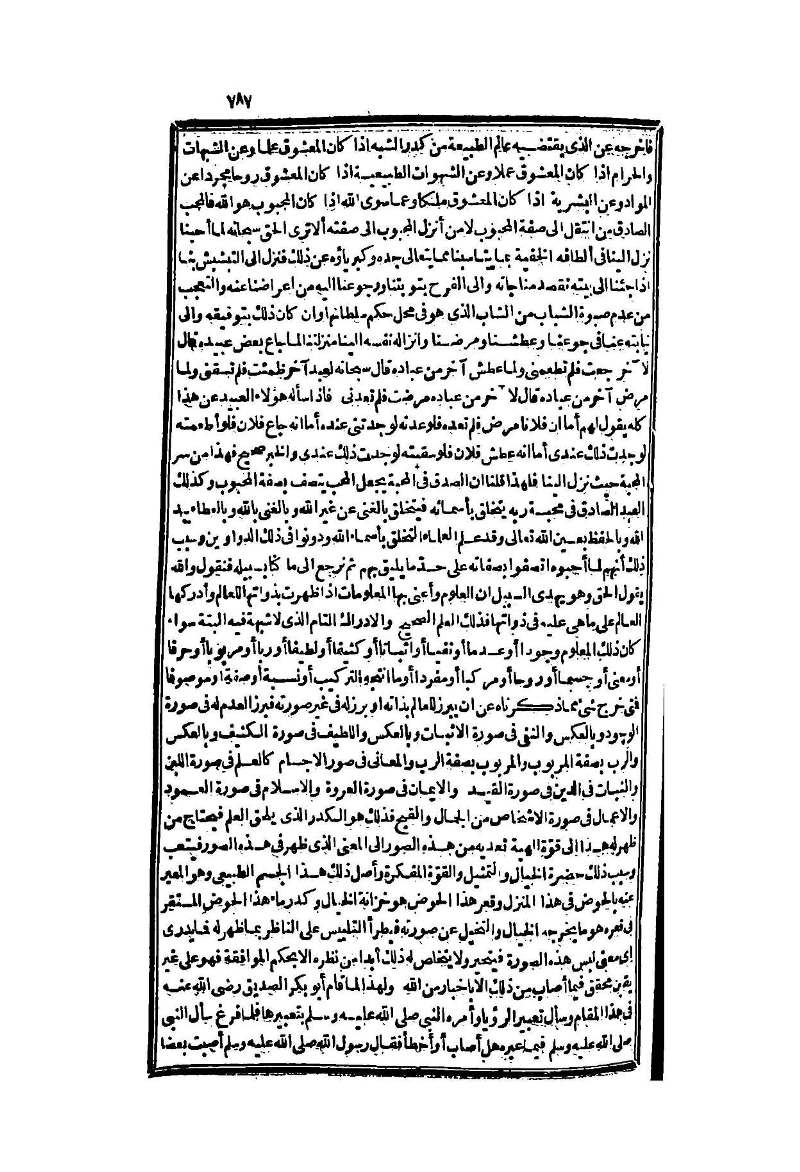 ٧٨٧
فاخرجه عن الذى يقتضيه عالم الطبيعة من كدر الشبه اذا كان المعشوق علما وعن الشبهات
والحرام اذا كان المعشوق عملا وعن الشهوات الطبيعية اذا كان المعشوق روحا مجردا عن
المواد وعن البشرية اذا كان المعشوق ملكا وعما سوى الله اذا كان المحبوب هو الله فالمحب
الصادق من انتقل الى صفة المحبوب لا من أنزل المحبوب الى صفته ألا ترى الحق سبحانه لما أحبنا
نزل الينا فى ألطافه الخفية بما يناسبنا مما يتعالى جده وكبرياؤه عن ذلك فنزل الى التبشبش بنا
اذا جئنا الى بيته نقصد مناجاته والى الفرح بتوبتنا ورجوعنا اليه من اعراضنا عنه والتعجب
من عدم صبوة الشباب من الشاب الذى هو فى محل حكم سلطانها وان كان ذلك بتوفيقه والى
نيابته عنا فى جوعنا وعطشنا ومرضنا وانزاله نفسه الينا منزلتنا لما جاع بعض عبيده قال
لآخر جعت فلم تطعمنى ولما عطش آخر من عباده قال سبحانه لعبد آخر ظمئت فلم تسقنى ولما
مرض آخر من عباده قال لآخر من عباده مرضت فلم تعدنى فاذا سأله هؤلاء العبيد عن هذا
كله يقول لهم أما ان فلانا مرض فلم تعده فلو عدته لوجدتنى عنده أما انه جاع فلان فلو أطعمته
لوجدت ذلك عندى أما انه عطش فلان فلو سقيته لوجدت ذلك عندى والخبر صحيح فهذا من سر
المحبة حيث نزل الينا فلهذا قلنا ان الصدق فى المحبة يجعل المحب يتصف بصفة المحبوب وكذلك
العبد الصادق فى محبة ربه يتخلق بأسمائه فيتخلق بالغنى عن غير الله وبالغنى بالله وبالعطاء بيد
الله وبالحفظ بعين الله تعالى وقد علم العلماء التخلق بأسماء الله ودونوا فى ذلك الدواوين وسبب
ذلك أنهم لما أحبوه اتصفوا بصفاته على حد ما يليق بهم ثم نرجع الى ما كنا بسبيله فنقول والله
يقول الحق وهو يهدى السبيل ان العلوم وأعنى بها المعلومات اذا ظهرت بذواتها للعالم وأدركها
العالم على ما هى عليه فى ذواتها فذلك العلم الصحيح والادراك التام الذى لا شبهة فيه البتة سواء
كان ذلك المعلوم وجودا أو عدما أو نفيا أو اثباتا أو كثيفا أو لطيفا أو ربا أو مربوبا أو حرفا
أو معنى أو جسما أو روحا أو مركبا أو مفردا أو ما انتجه التركيب أو نسبة أو صفة أو موصوفا
فتى خرج شئ مما ذكرناه عن ان يبرز للعالم بذاته أو برز له فى غير صورته فبرز العدم له فى صورة
الوجود وبالعكس والنفى فى صورة الاثبات وبالعكس واللطيف فى صورة الكثيف وبالعكس
والرب بصفة المربوب والمربوب بصفة الرب والمعانى فى صور الاجسام كالعلم فى صورة اللبن
والثبات فى الدين فى صورة القيد والايمان فى صورة العروة والاسلام فى صورة العمود
والاعمال فى صورة الاشخاص من الجمال والقبح فذلك هو الكدر الذى يلحق العلم فيحتاج من
ظهر له هذا الى قوة الهية تعديه من هذه الصور الى المعنى الذى ظهر فى هذه الصور فيتعب
وسبب ذلك حضرة الخيال والتمثيل والقوة المفكرة وأصل ذلك هذا الجسم الطبيعى وهو المعبر
عنه بالحوض فى هذا المنزل وقعر هذا الحوض هو خزانة الخيال وكدر ماء هذا الحوض المستقر
فى قعره هو ما يخرجه الخيال والتخيل عن صورته فيطرأ التلبيس على الناظر بما ظهر له فما يدرى
اى معنى لبس هذه الصورة فيتحير ولا يتخلص له ذلك أبدا من نظره الا بحكم الموافقة فهو على غير
يقين محقق فيما أصاب من ذلك الا باخبار من الله ولهذا لما قام أبو بكر الصديق رضى الله عنه
فى هذا المقام وسأل تعبير الرؤيا وأمره النبى صلى الله عليه وسلم بتعبيرها فلما فرغ سأل النبى
صلى الله عليه وسلم فيما عبره هل أصاب أو أخطأ فقال رسول الله صلى الله عليه وسلم أصبت بعضا